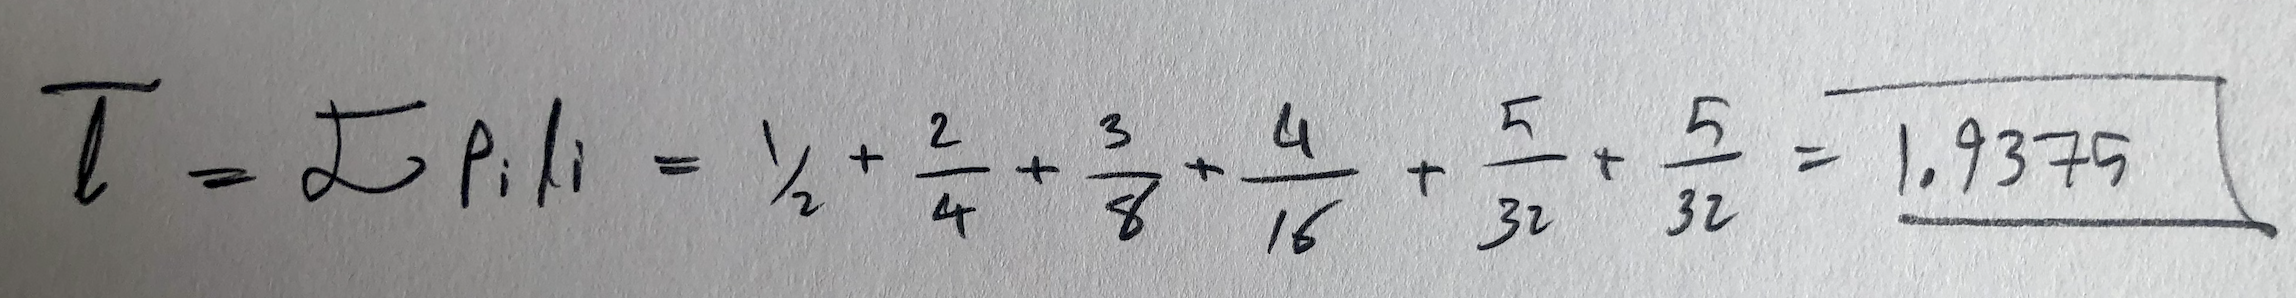 l̅ = Σ Pili = 1/2 + 2/4 + 3/8 + 4/16 + 5/32 + 5/32 = 1.9375